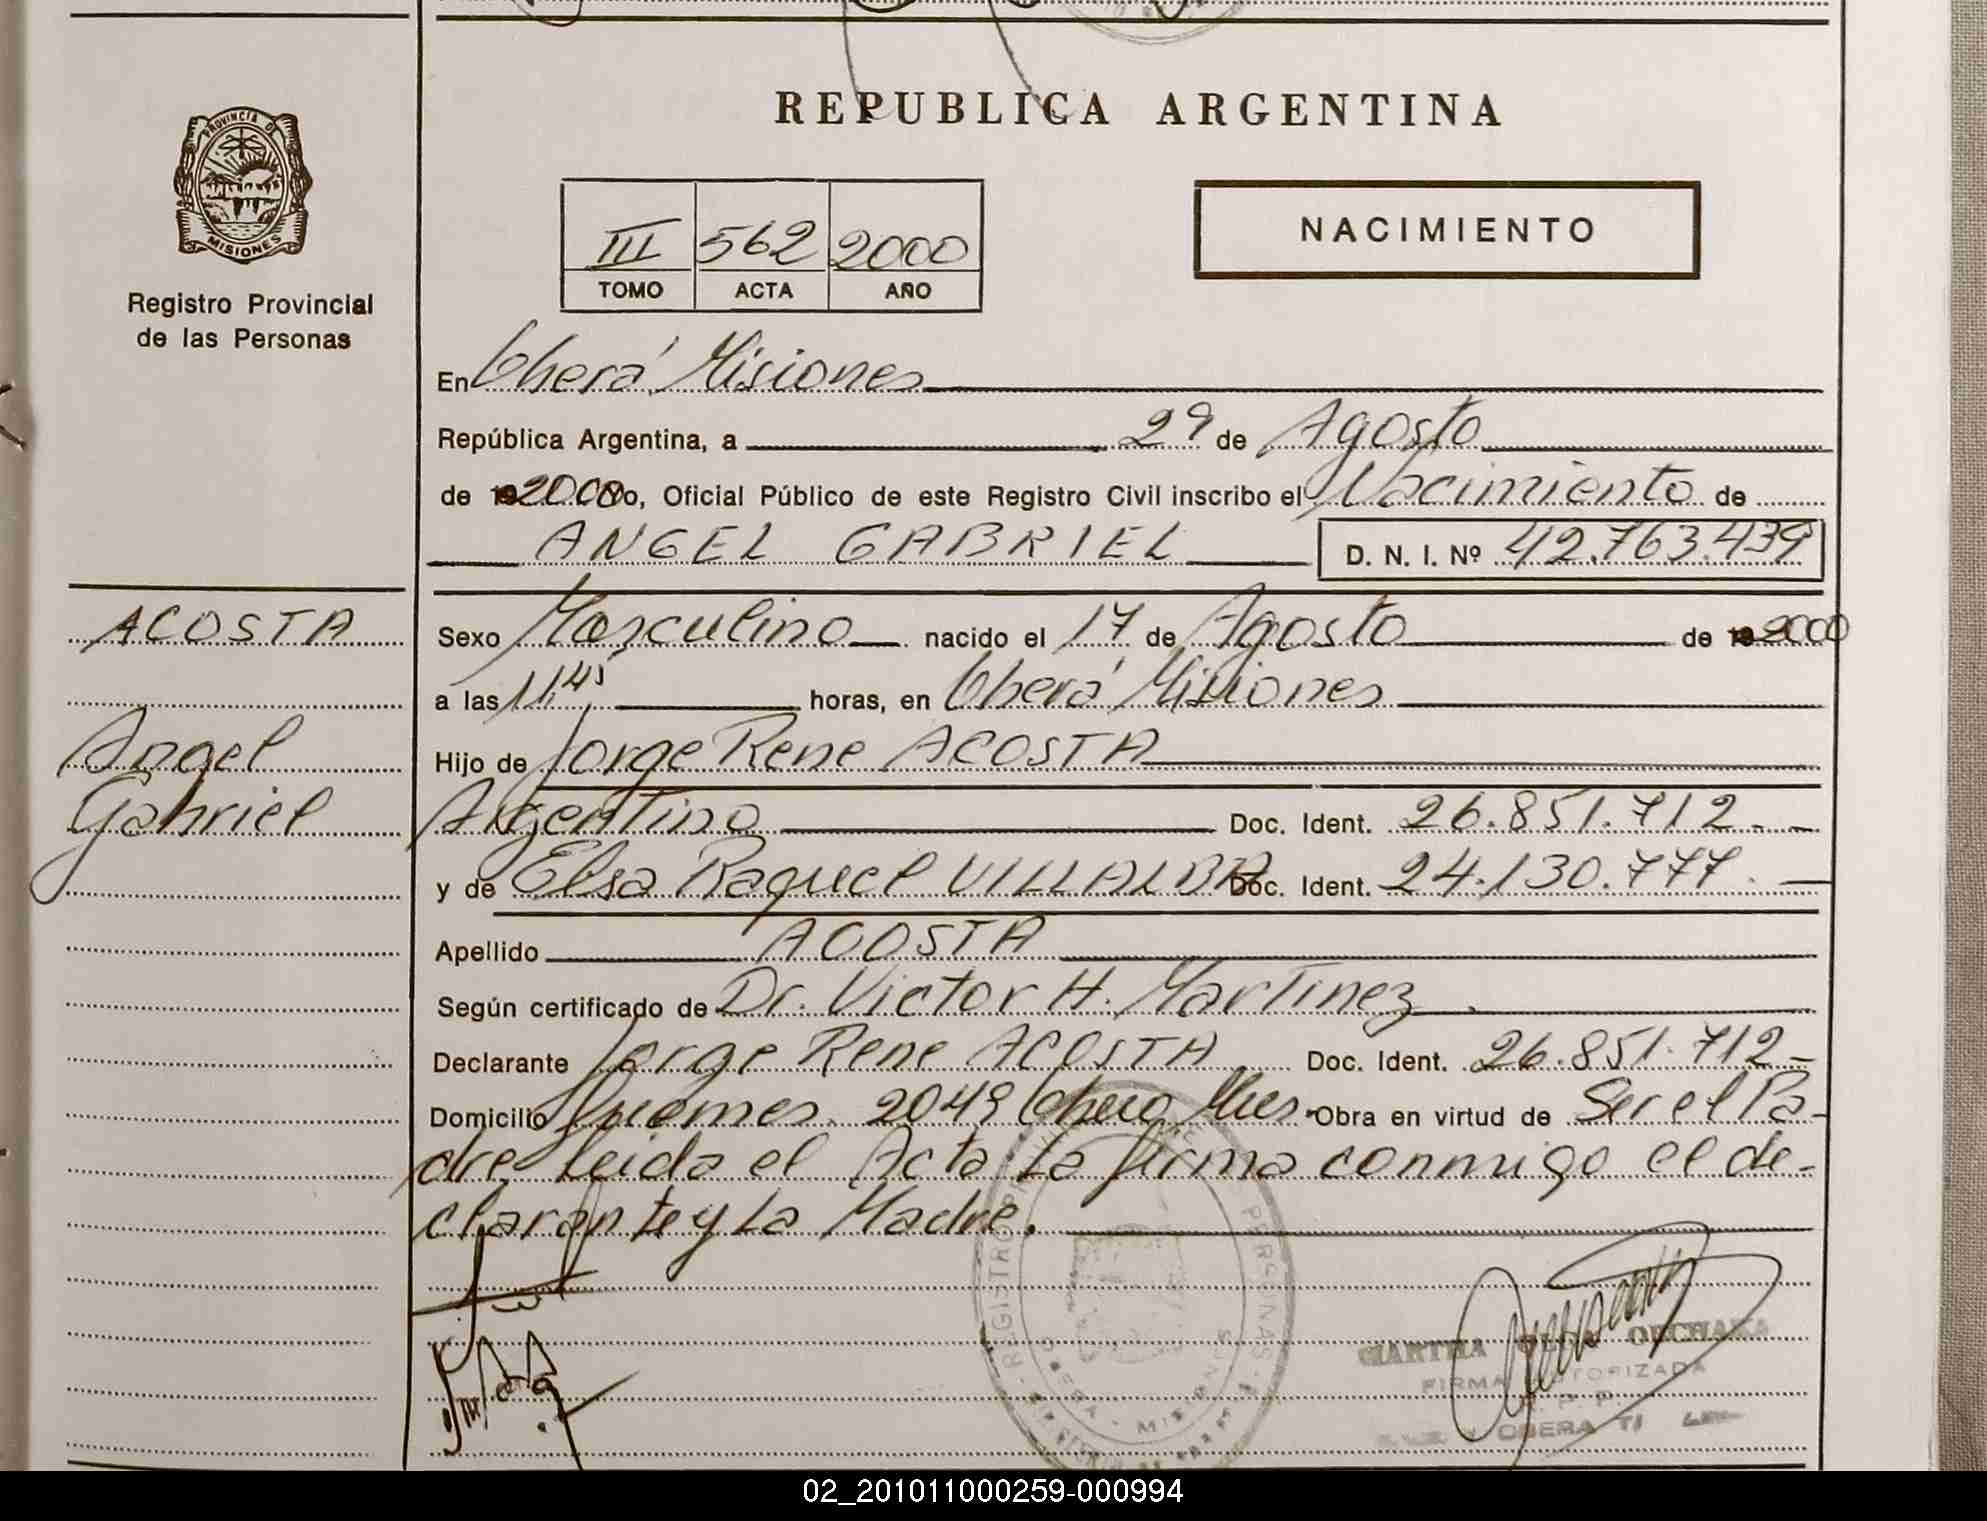 REPUBLICA ARGENTINA
PROVINCIA DE
MISIONES
Registro Provincial
de las Personas
III 562 2000
TOMO ACTA AÑO
NACIMIENTO
En Oberá Misiones
República Argentina, a 29 de Agosto
de 19 2000 Yo, Oficial Público de este Registro Civil inscribo el Nacimiento de
ANGEL GABRIEL D. N. I. Nº 42.763.439
ACOSTA
Angel
Gabriel
Sexo Masculino nacido el 17 de Agosto de 19 2000
a las 11,45 horas, en Oberá Misiones
Hijo de Jorge Rene ACOSTA
Argentino Doc. Ident. 26.851.712
y de Elsa Raquel VILLALBA Doc. Ident. 24.130.777
Apellido ACOSTA
Según certificado de Dr. Victor H. Martinez
Declarante Jorge Rene ACOSTA Doc. Ident. 26.851.712
Domicilio Guemes 2049 Obera Mnes. Obra en virtud de Ser el Pa-
dre Leida el Acta La firma conmigo el de-
clarante y La Madre.
REGISTRO PERSONAS
OBERA - MISIONES
FIRMA AUTORIZADA
R. P. P.
OBERA
02_201011000259-000994